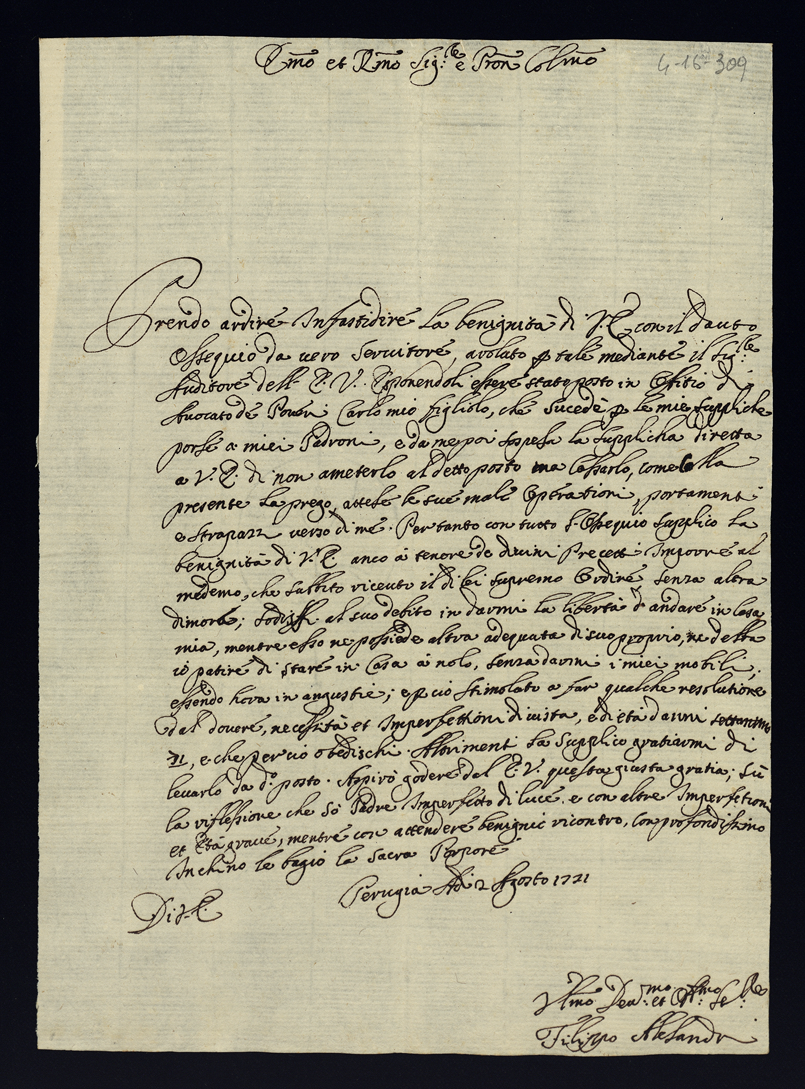 Emo et Rmo Sig.re e Pron Colmo
4-16-309
Prendo ardire Infastidire la benignità di V. E con il dauto
Ossequio da vero Seruitore, auolato p tale mediante il Sig.re
Auditore dell E. V. Esponendoli essere stato posto in Offitio di
Auocato de Poueri Carlo mio figliolo, che Sucedè p le mie Suppliche
porse a miei Padroni, e da me poi sospesa la Supplicha diretta
a V. E. di non ameterlo al detto posto ma Cassarlo, come Colla
presente La prego, attese le sue male Optrationi, portamenti
e Strapazzi verso di me. Per tanto con tutto l Ossequio Supplico La
benignità di V. E anco à tenore de diuini Precetti Imporre al
medemo, che Subbito riceuto il di lei Supremo Ordine senza altra
dimora; Sodisfi al suo debito in darmi la libertà d andare in Casa
mia, mentre esso ne possiede altra adequata di suo proprio, ne debba
iò patire di stare in Casa à nolo, Senza darmi i miei mobili,
essendo hora in angustie; e p ciò stimolato a far qualche resolutione
dal douere, necessità et Imperfettioni di uista, e di età d anni
71, e che perciò obedischi. Altrimenti La Supplico gratiarmi di
leuarlo da d.o posto. Aspirò godere dal E. V. questa giusta gratia; Sù
la riflessione che Sò Padre Imperfetto di luce, e con altre Imperfetioni
et Età graue, mentre con attendere benigno ricontro, Con profondissimo
Inchino le bagio la Sacra Porpore
Perugia Adì 2 Agosto 1721
Di V. E.
Vmo Deu.mo et Obl.mo Se.re
Filippo Alesandri